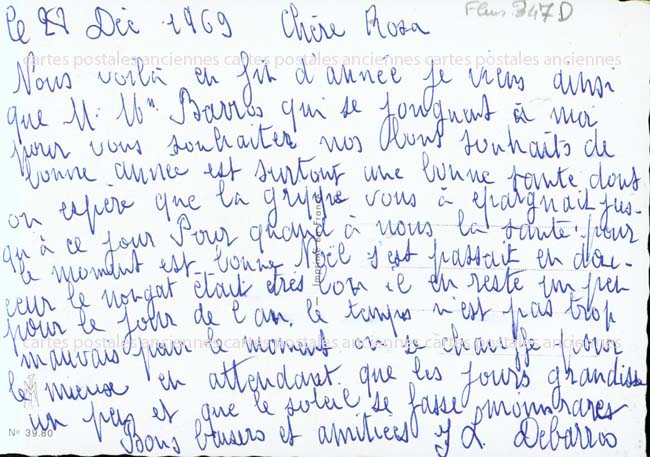 Fleurs 347 D
le 27 Déc 1969 Chère Rosa
cartes postales anciennes cartes postales anciennes
Nous voilà en fin d'année je viens ainsi
que M. Mm Barros qui se joignent à moi
pour vous souhaiter nos bons souhaits de
bonne année est surtout une bonne santé dont
on espère que la grippe vous à épargnait jus-
qu'à ce jour Pour quand à nous la santé pour
le moment est bonne Noël s'est passait en dou-
ceur le nougat était très bon il en reste un peu
pour le jour de l'an. le temps n'est pas trop
cartes postales anciennes cartes postales anciennes
mauvais pour le moment on se chauffe pour
le mieux en attendant que les jours grandisse
un peu et que le soleil se fasse moins rares
Bons baisers et amitiées J L. Debarros
N° 39.80
Imprimé en France